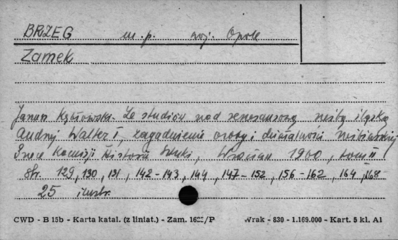 BRZEG m.p. woj. Opole
Zamek
Janusz Kębłowski. Ze studiów nad renesansową rzeźbą śląską
Andrzej Walter I, zagadnienie osoby i działalności
Prace Komisji Historii Sztuki, Wrocław 1960, tom II
Str. 129, 130, 131, 142-143, 144, 147-152, 156-162, 164, 168
25 ilustr.
CWD - B 15b - Karta katal. (z liniat.) - Zam. /P Wrak - 830 - 1.160.000 - Kart. 5 kl. A1